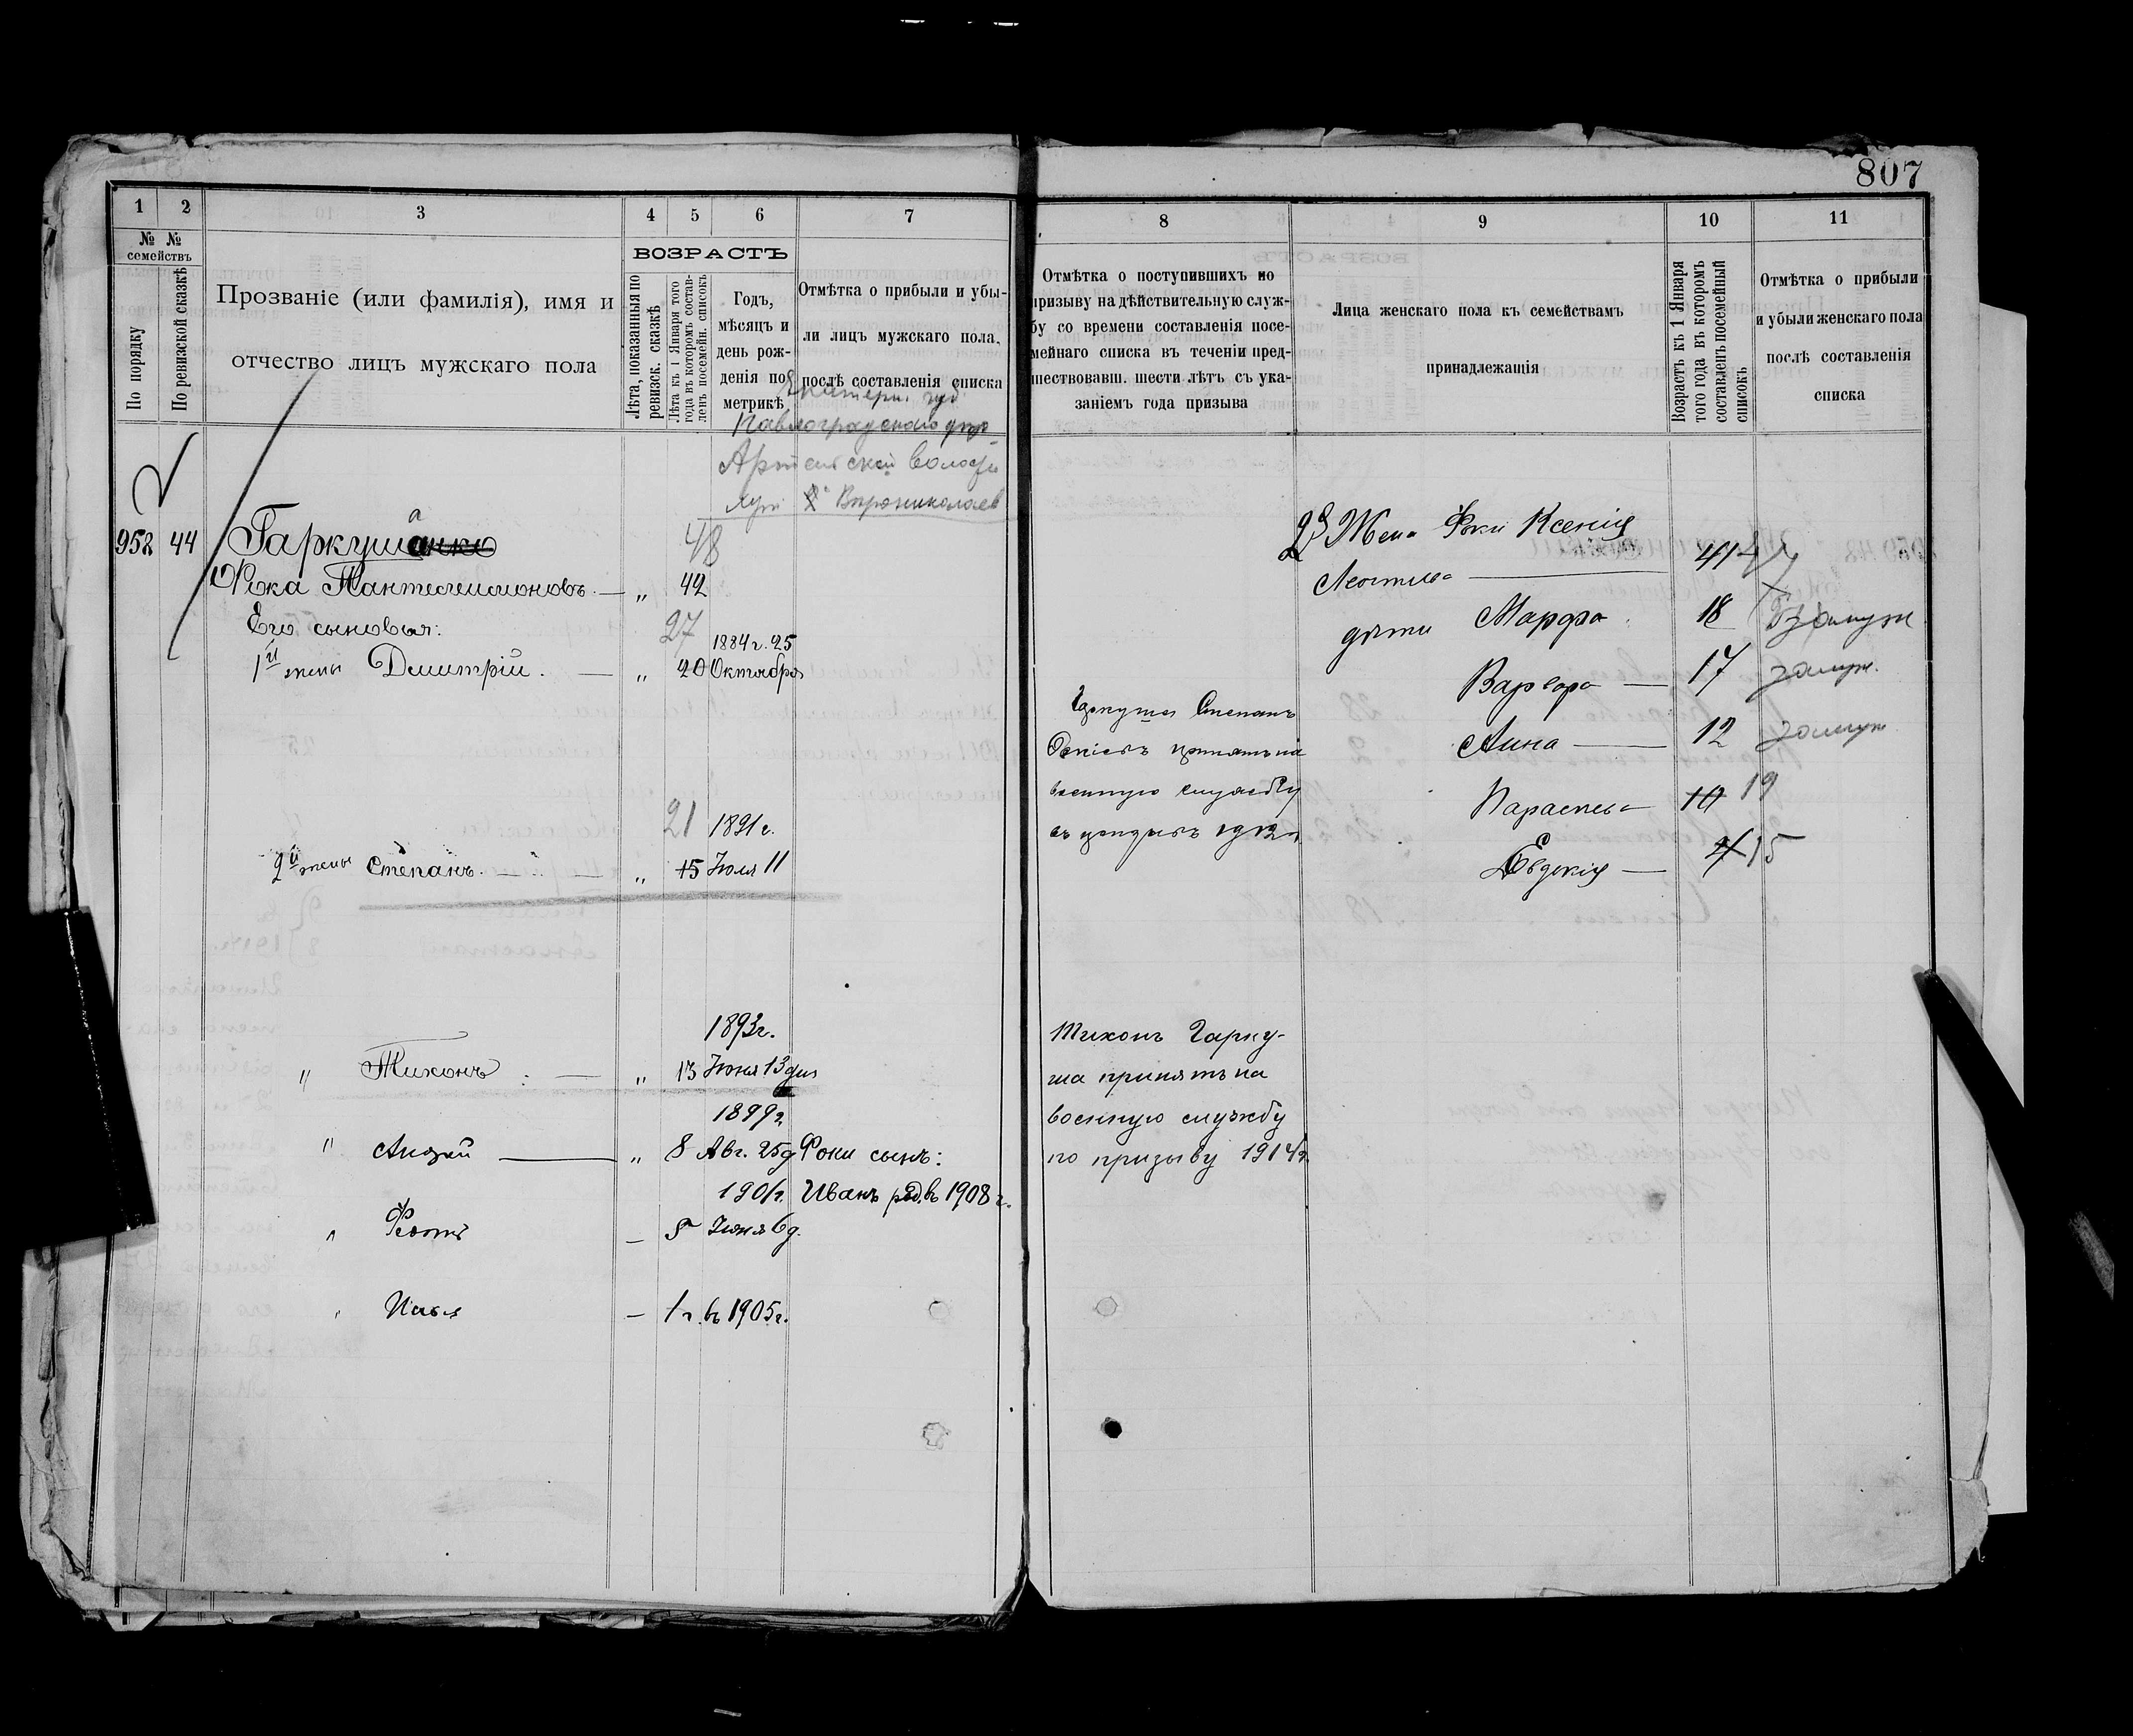 807
1 2 3 4 5 6 7
№ № семействъ
По порядку
По ревизской сказкѣ
Прозваніе (или фамилія), имя и
отчество лицъ мужскаго пола
ВОЗРАСТЪ
Лѣта, показанныя по
ревизск. сказкѣ
Лѣта къ 1 Января того
года въ которомъ состав-
ленъ посемейн. списокъ
Годъ,
мѣсяцъ и
день рож-
денія по
метрикѣ
Отмѣтка о прибыли и убы-
ли лицъ мужскаго пола,
послѣ составленія списка
Екатери. губ
Павлоградскаго
волости
952 44 Гаркуша
48
Фока Пантелеимоновъ — „ 42
Его сыновья:
27 1884 г. 25
1й жены Дмитрій. — „ 20 Октября
21 1891 г.
2й жены Степанъ. — „ 15 Іюля 11
1893 г.
„ Тихонъ — „ 13 Іюня 13 дня
1899 г.
„ Андрей — „ 8 Авг. 25 д Фоки сынъ:
1901 г. Иванъ род. въ 1908 г.
„ — 5 Іюня 6 д.
„ — 1 г. въ 1905 г.
8 9 10 11
Отмѣтка о поступившихъ по
призыву на дѣйствительную служ-
бу со времени составленія посе-
мейнаго списка въ теченіи пред-
шествовавш. шести лѣтъ съ ука-
заніемъ года призыва
Лица женскаго пола къ семействамъ
принадлежащія
Возрастъ къ 1 Января
того года въ которомъ
составленъ посемейный
списокъ
Отмѣтка о прибыли
и убыли женскаго пола
послѣ составленія
списка
2я Жена Фоки Ксенія
Леонтьева — 41 47
дѣти Марфа 18 замуж
Варвара — 17 замуж.
Анна — 12 замуж
Параскева 10 19
Евдокія — 15
Гаркуша Степанъ
принятъ на
военную службу
въ 1912 г.
Тихонъ Гарку-
ша принятъ на
военную службу
по призыву 1914 г.